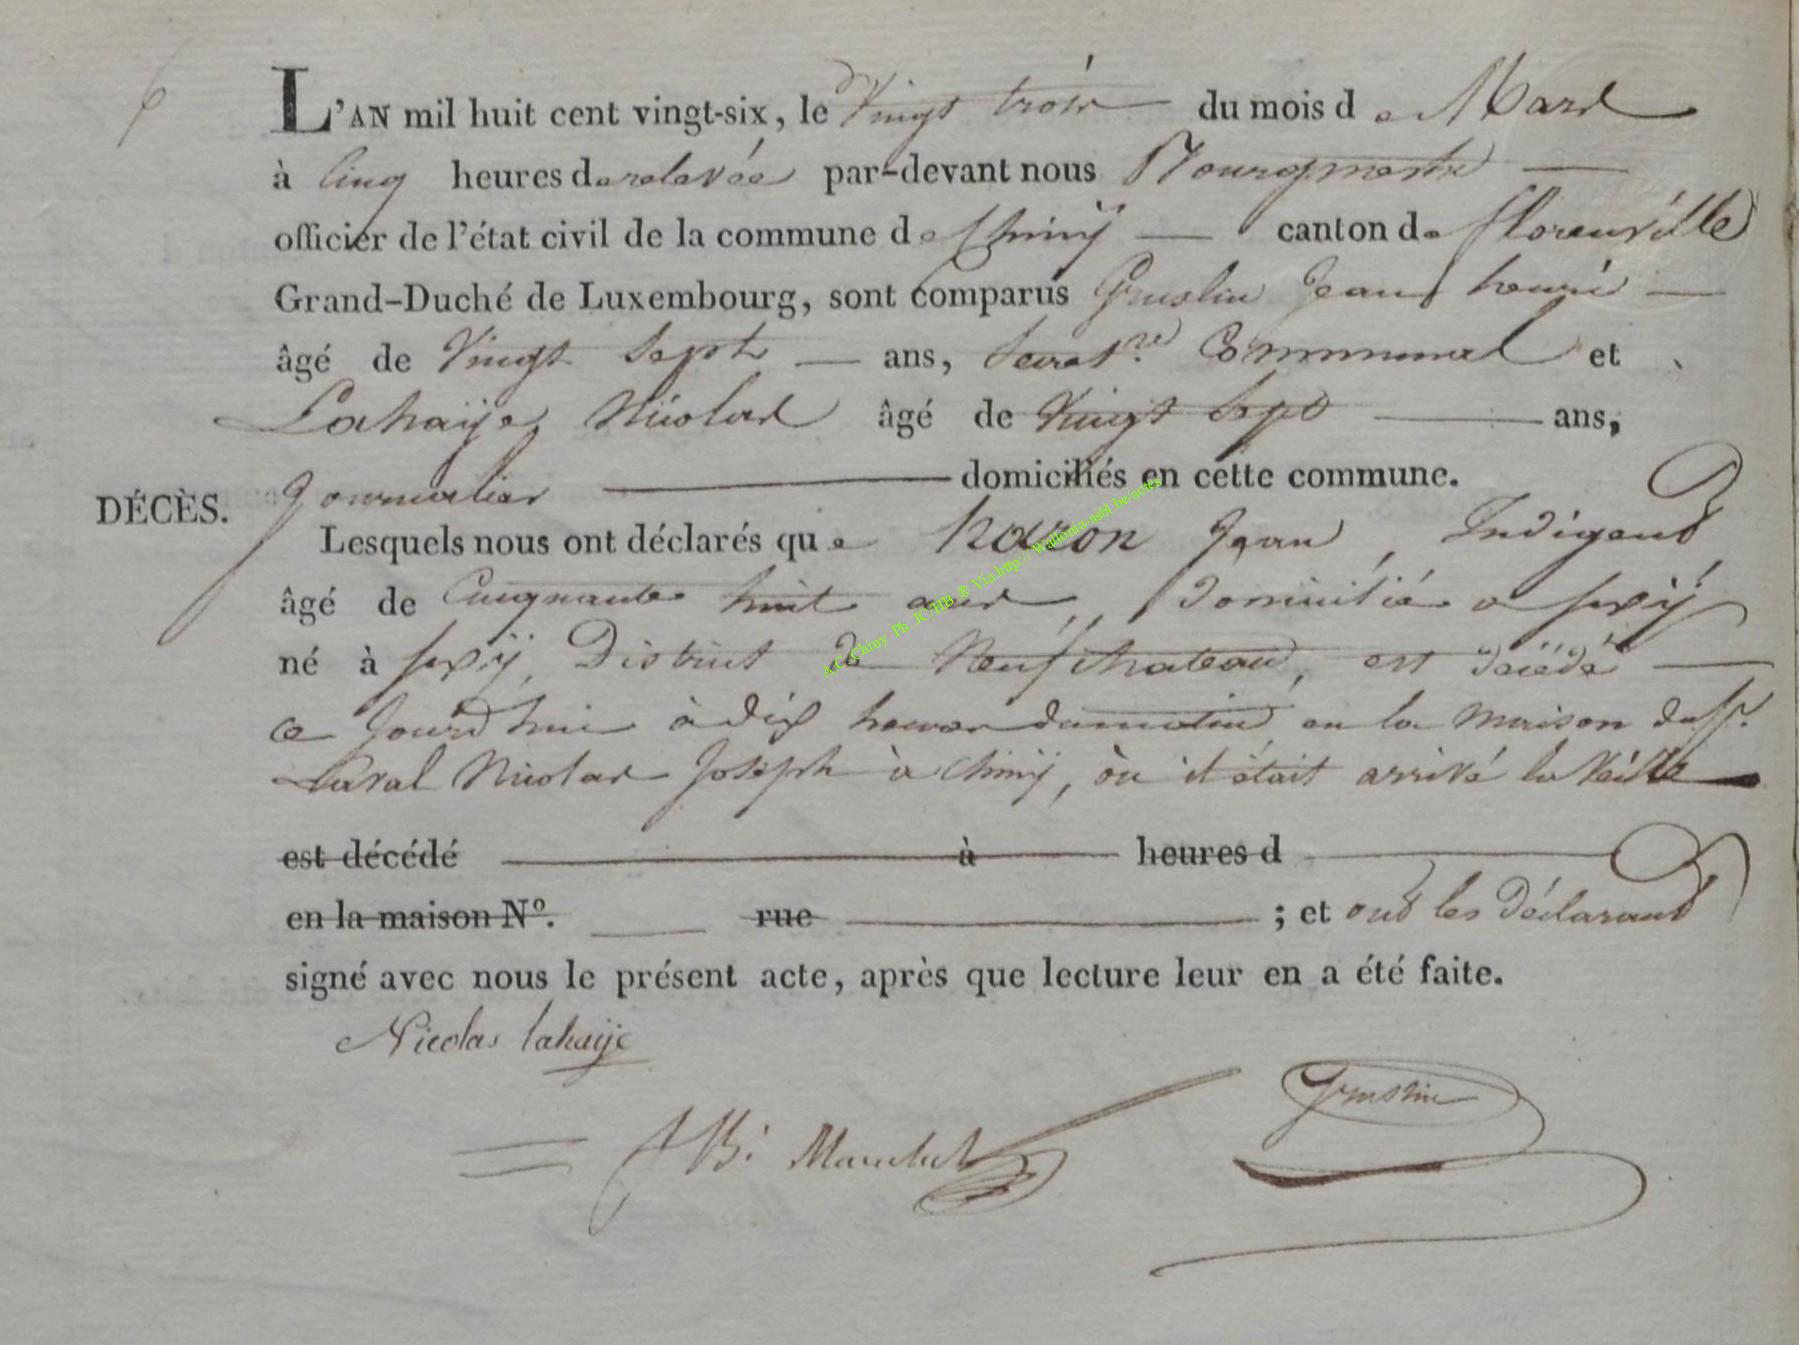 6
L'AN mil huit cent vingt-six, le Vingt trois du mois de Mars
à Cinq heures de relevée par-devant nous Bourgmestre
officier de l'état civil de la commune de Chinÿ canton de florenville
Grand-Duché de Luxembourg, sont comparus Gruslin Jean henri
âgé de Vingt Sept ans, Secret.re Communal et
Lahaÿe Nicolas âgé de Vingt Sept ans,
Journalier domiciliés en cette commune.
DÉCÈS.
Lesquels nous ont déclarés que Nozon Jean, Indigent
âgé de Cinquante huit ans, domicilié a
né à District de Neufchateau, est décédé
ce Jourd'hui à dix heures du matin en la Maison du Sr.
Laval Nicolas Joseph à Chinÿ, où il était arrivé la Veille
est décédé à heures d
en la maison N°. rue ; et ont les déclarants
signé avec nous le présent acte, après que lecture leur en a été faite.
Nicolas lahaÿe
Gruslin
A.C. Chiny Ph. JC/HB @ Via http://Wallonia-asbl.be/actes